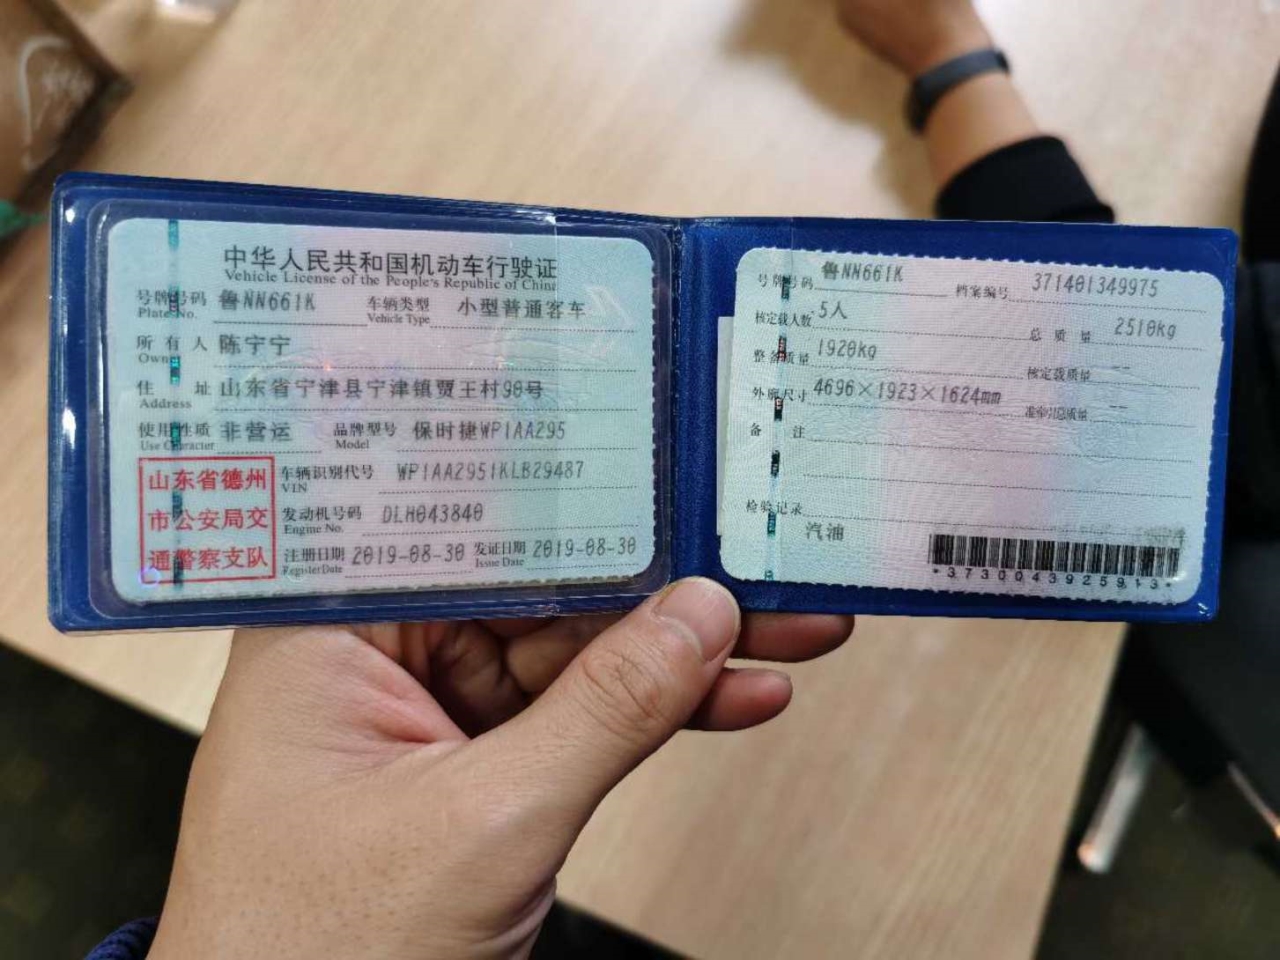 中华人民共和国机动车行驶证
Vehicle License of the People's Republic of China
号牌号码 鲁NN661K 车辆类型 小型普通客车
Plate No. Vehicle Type
所有人 陈宁宁
Owner
住址 山东省宁津县宁津镇贾王村98号
Address
使用性质 非营运 品牌型号 保时捷WP1AA295
Use Character Model
山东省德州
市公安局交
通警察支队
车辆识别代号 WP1AA2951KLB29487
VIN
发动机号码 DLH043840
Engine No.
注册日期 2019-08-30 发证日期 2019-08-30
Register Date Issue Date
号牌号码 鲁NN661K 档案编号 371401349975
核定载人数 5人 总质量 2510kg
整备质量 1920kg 核定载质量 --
外廓尺寸 4696×1923×1624mm 准牵引总质量 --
备注
检验记录
汽油
*3730043925913*